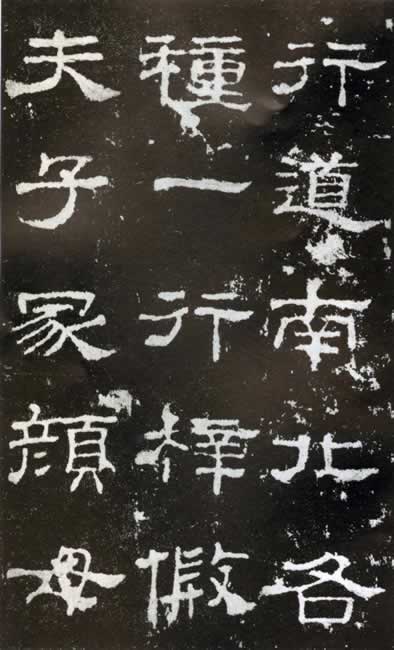 行道南北各
種一行梓假
夫子冢顏母